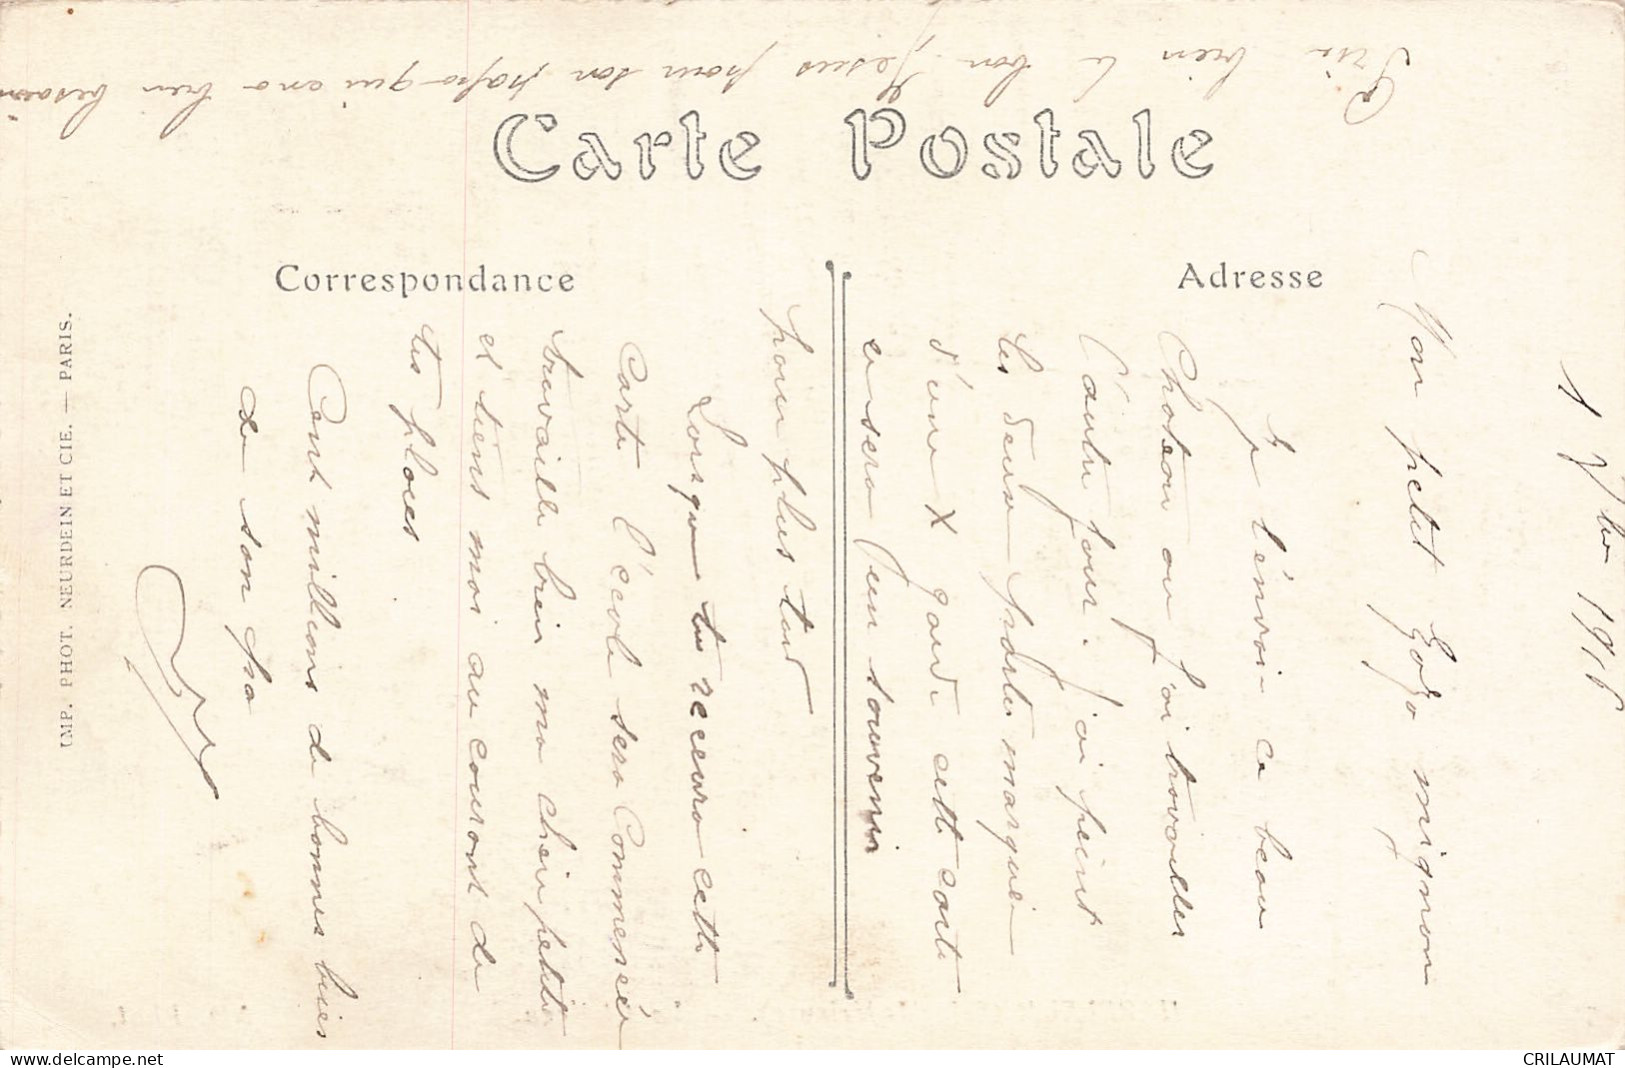 Carte Postale
Correspondance
Adresse
IMP. PHOT. NEURDEIN ET CIE. — PARIS.
1 7bre 1916
Mon petit mignon
Je t'envoi ce beau
Chateau ou j'ai travailler
l'autre jour. j'ai peint
les deux portes marquée
d'une X garde cette carte
ce sera un souvenir
pour plus tard
Lorsque tu recevra cette
Carte l'école sera Commencée
travaille bien ma cheri petite
et tiens moi au courant de
tes places
Cent millions de bonnes bises
de ton pa
Prie bien le bon Jesus pour ton papa qui en a bien besoin
CRILAUMAT
www.delcampe.net